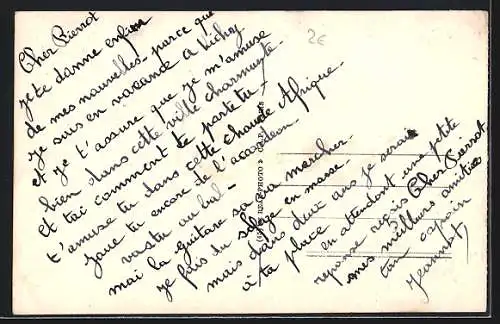 2€
Cher Pierrot
je te danne enfin
de mes nauvelles - parce que
je suis en vacance a Vichy
et je t'assure que je m'amuse
bien dans cette ville charmante
et toi comment te parte tu -
t'amuse tu dans cette chaude Afrique -
jaue tu encore de l'accordéon.
vastu au bal -
mai la guitare sa va marcher -
je fais du solfège en masse.
mais dans deux ans je serais
à ta place en attendant une petite
reponse reçois Cher Pierrot
mes meilleurs amitiés
tan copain
Jeannot,
PHOTO